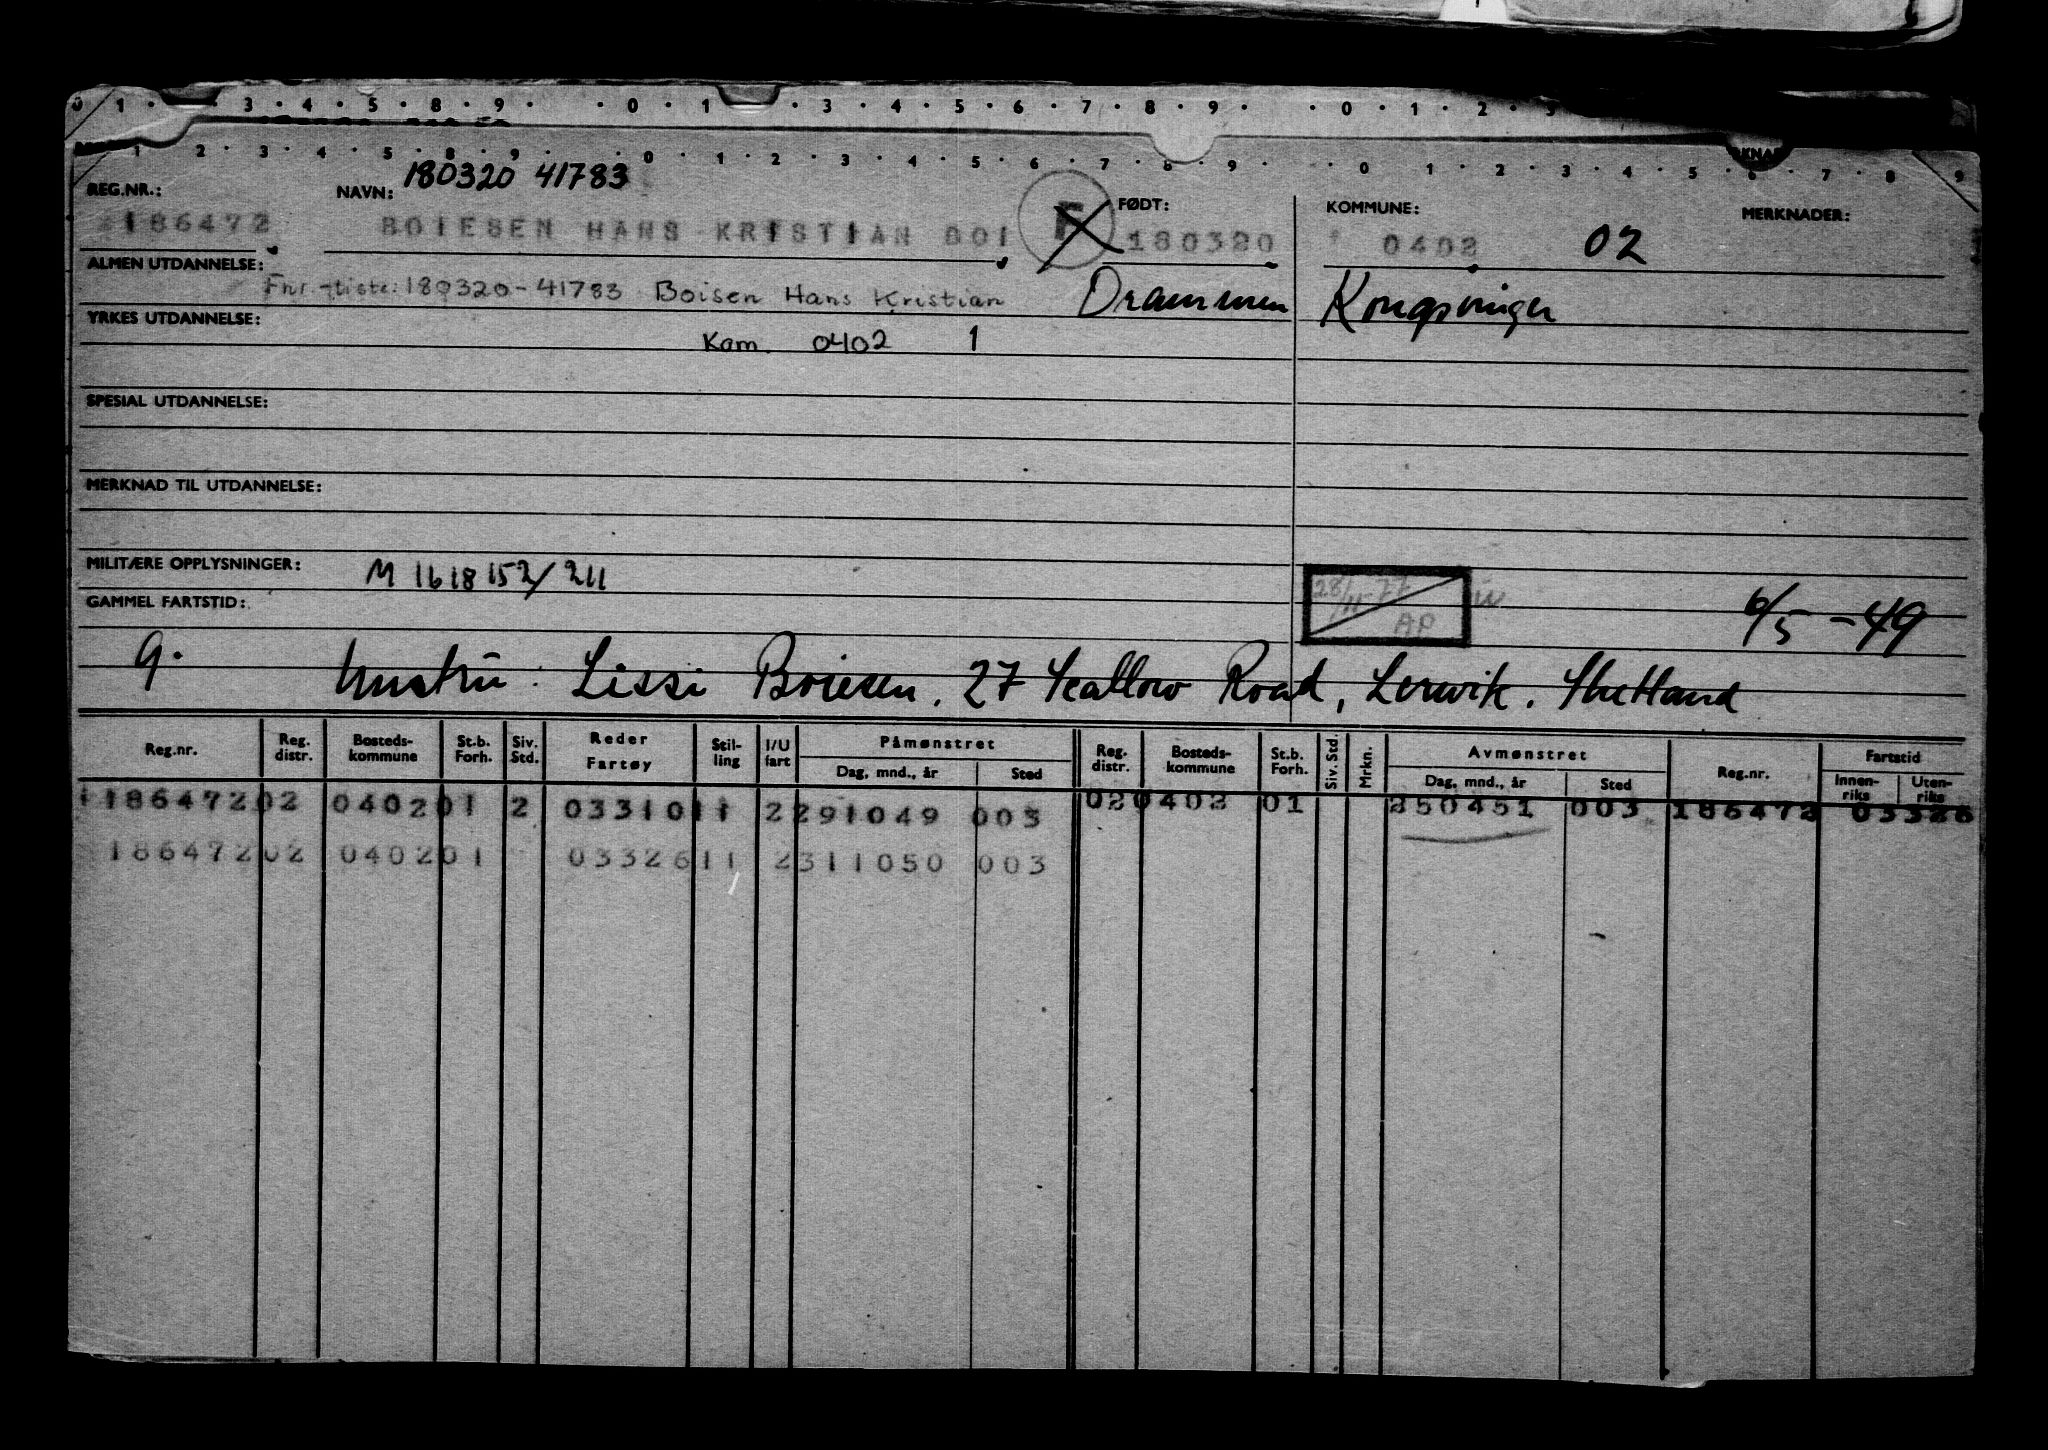 0 1 · 3 · 4 · 5 · 8 · 9 · · 0 · 1 · 3 · 4 · 5 · 6 · 7 · 8 · 9 · · 0 · 1 · 2 · 3
1 2 · 3 · 4 · 5 · 8 · 9 · · 0 · 1 · 2 · 3 · 4 · 5 · 7 · 8 · 9 · · 0 · 1 · 2 · 3 · 4 · 5 · 6 · 7 · 8 · 9
180320 41783
REG.NR.: NAVN: FØDT: KOMMUNE: MERKNADER:
186472 BOIESEN HANS KRISTIAN BOI F 180320 0402 02
ALMEN UTDANNELSE:
Fnr.-liste: 180320-41783 Boisen Hans Kristian Drammen Kongsvinger
YRKES UTDANNELSE:
Kom. 0402 1
SPESIAL UTDANNELSE:
MERKNAD TIL UTDANNELSE:
MILITÆRE OPPLYSNINGER: M 1618152/211
28/11-77 AP
GAMMEL FARTSTID: 6/5 -49
g. Hustru: Lissi Boiesen, 27 Scallow Road, Lerwik. Shetland
Reg.nr. Reg. distr. Bosteds-kommune St.b. Forh. Siv. Std. Reder Fartøy Stil-ling I/U fart Påmønstret Dag, mnd., år Sted Reg. distr. Bosteds-kommune St.b. Forh. Siv. Std. Mrkn. Avmønstret Dag, mnd., år Sted Reg.nr. Fartstid Innen-riks Uten-riks
186472 02 0402 01 2 03310 11 2 291049 003 02 0402 01 250451 003 186472 03326
186472 02 0402 01 03326 11 2 311050 003